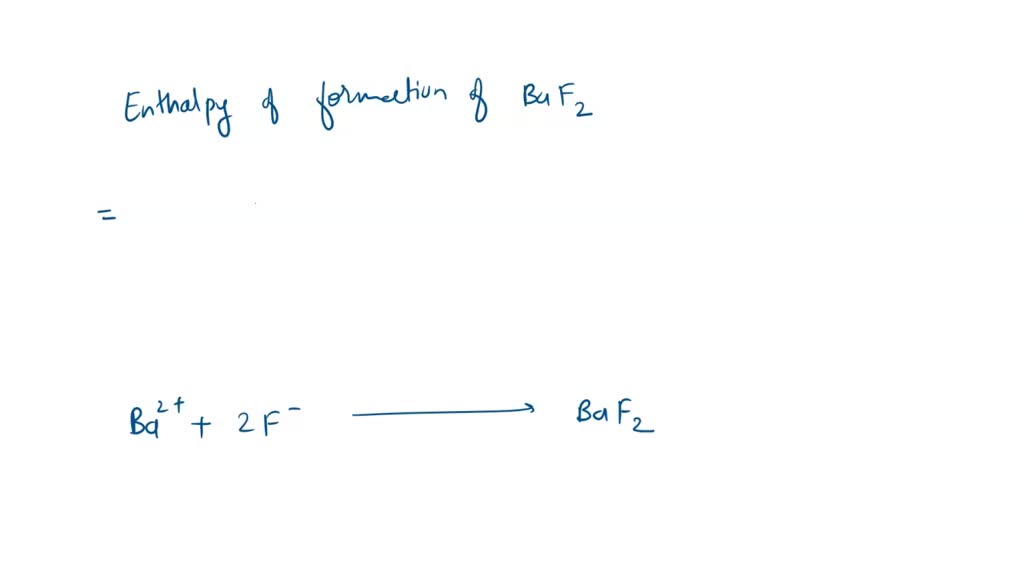 Enthalpy of formation of BaF₂
=
Ba²⁺ + 2F⁻ ⟶ BaF₂